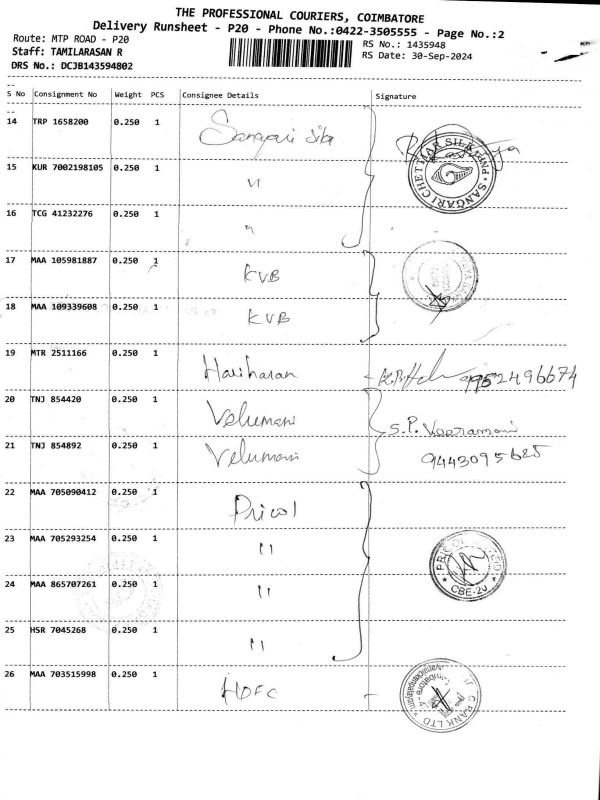 THE PROFESSIONAL COURIERS, COIMBATORE
Delivery Runsheet - P20 - Phone No.:0422-3505555 - Page No.:2
Route: MTP ROAD - P20
RS No.: 1435948
Staff: TAMILARASAN R
RS Date: 30-Sep-2024
DRS No.: DCJB143594802
S No Consignment No Weight PCS Consignee Details Signature
14 TRP 1658200 0.250 1 Sangari silk
SANGARI CHETTIAR SILK
15 KUR 7002198105 0.250 1 "
16 TCG 41232276 0.250 1 "
17 MAA 105981887 0.250 1 KVB
18 MAA 109339608 0.250 1 KVB
19 MTR 2511166 0.250 1 Hariharan 9952496674
20 TNJ 854420 0.250 1 Velumani S.P. Veeramani
21 TNJ 854892 0.250 1 Velumani 9443095625
22 MAA 705090412 0.250 1 Pricol
23 MAA 705293254 0.250 1 "
CBE-20
24 MAA 865707261 0.250 1 "
25 HSR 7045268 0.250 1 "
26 MAA 703515998 0.250 1 HDFC
BANK LTD